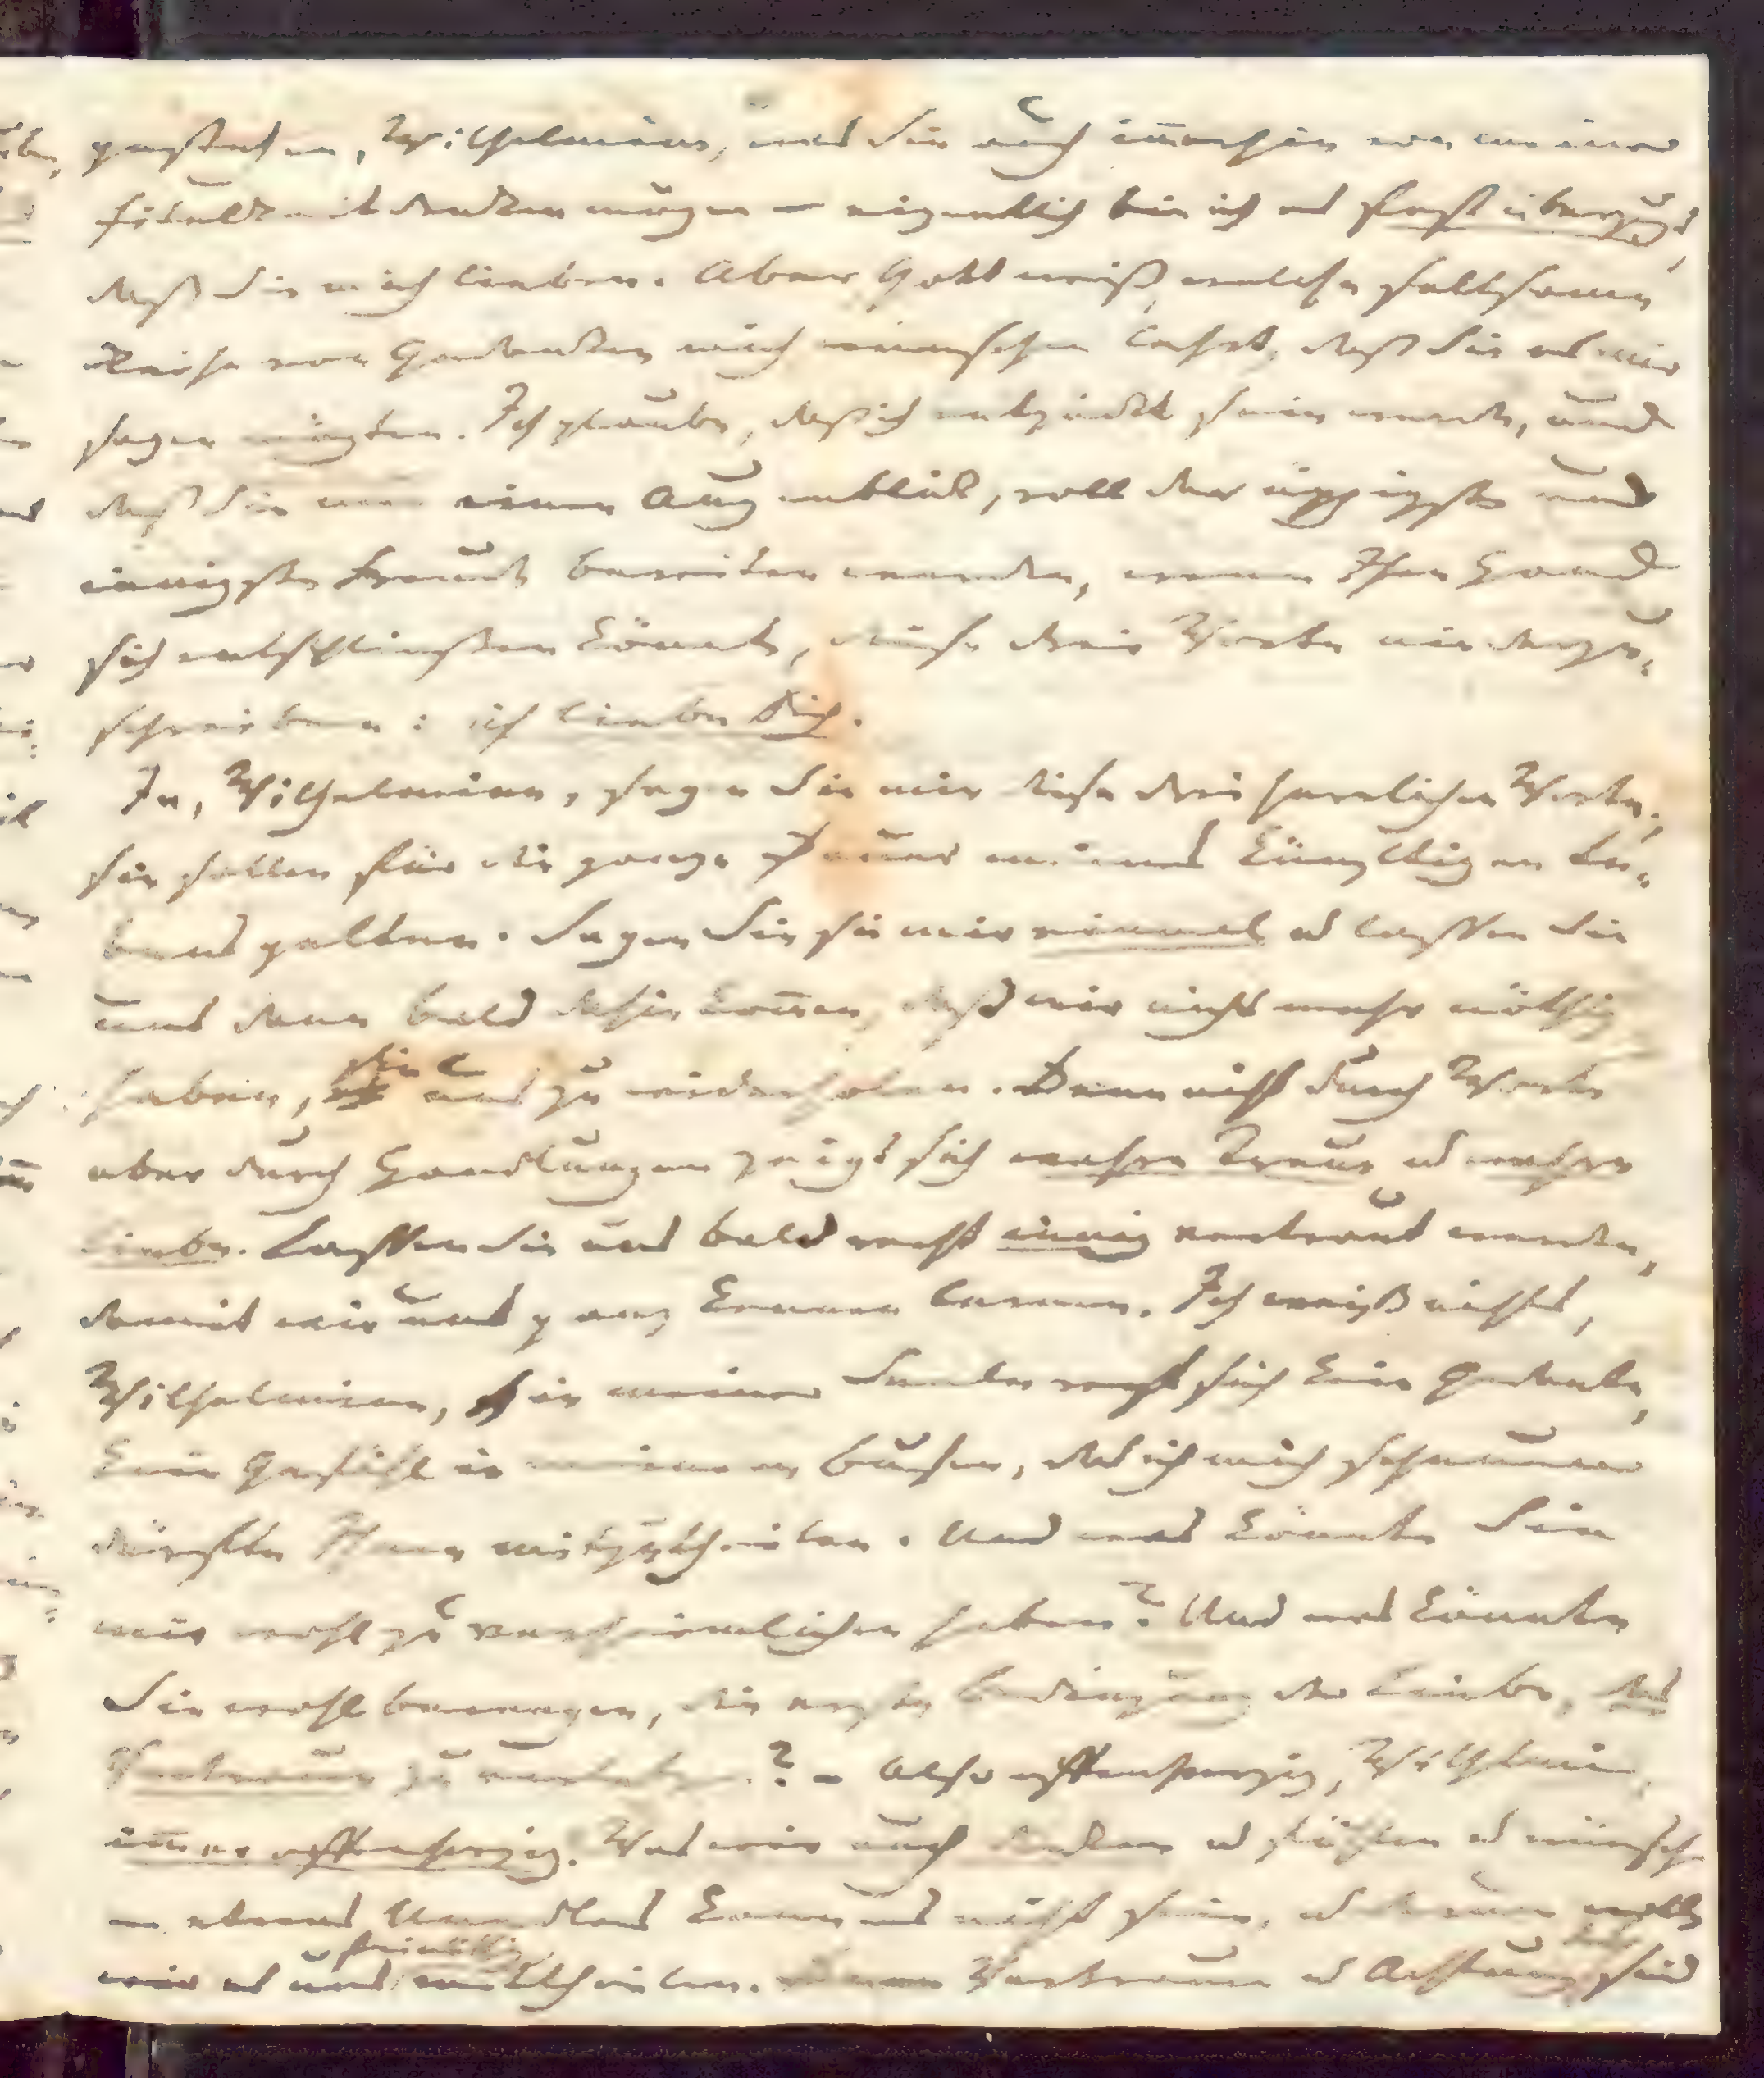 gestehen, Wilhelmine, und Sie auch immerhin von meiner
Eitelkeit denken mögen – eigentlich bin ich es fest überzeugt,
daß Sie mich lieben. Aber Gott weiß, welche seltsame
Reihe von Gedanken mich wünschen lehrt, daß Sie es mir
sagen mögten. Ich glaube, daß ich entzückt sein werde, und
daß Sie mir einen Augenblick, voll der üppigsten und
innigsten Freude bereiten werden, wenn Ihre Hand
sich entschließen könnte, diese drei Worte niederzu-
schreiben: ich liebe Dich.
Ja, Wilhelmine, sagen Sie mir diese drei herrlichen Worte;
sie sollen für die ganze Dauer meines künftigen Le-
bens gelten. Sagen Sie sie mir einmal u lassen Sie
uns dann bald dahin kommen, daß wir nicht mehr nöthig
haben, sie uns zu wiederholen. Denn nicht durch Worte
aber durch Handlungen zeigt sich wahre Treue u wahre
Liebe. Lassen Sie uns bald recht innig vertraut werden,
damit wir uns ganz kennen lernen. Ich weiß nichts,
Wilhelmine, in meiner Seele regt sich kein Gedanke,
kein Gefühl in meinem Busen, das ich mich scheuen
dürfte Ihnen mitzutheilen. Und was könnten Sie
mir wohl zu verheimlichen haben? Und was könnte
Sie wohl bewegen, die erste Bedingung der Liebe, das
Vertrauen zu verletzen? – Also offenherzig, Wilhelmine,
immer offenherzig. Was wir auch denken u fühlen u wünschen
– etwas Unedles kann es nicht sein, u darum wollen
wir es uns freimüthig mittheilen. Vertrauen u Achtung sind